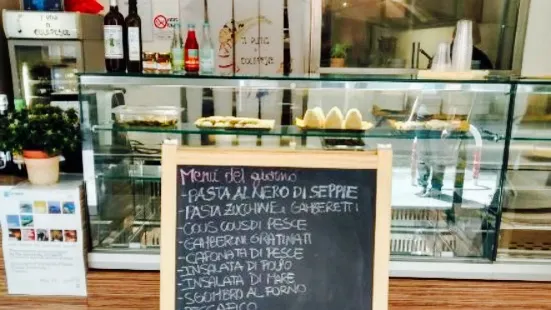 Menù del giorno
- PASTA AL NERO DI SEPPIE
- PASTA ZUCCHINE e GAMBERETTI
- COUS COUS DI PESCE
- GAMBERONI GRATINATI
- CAPONATA DI PESCE
- INSALATA DI POLPO
- INSALATA DI MARE
- SGOMBRO AL FORNO